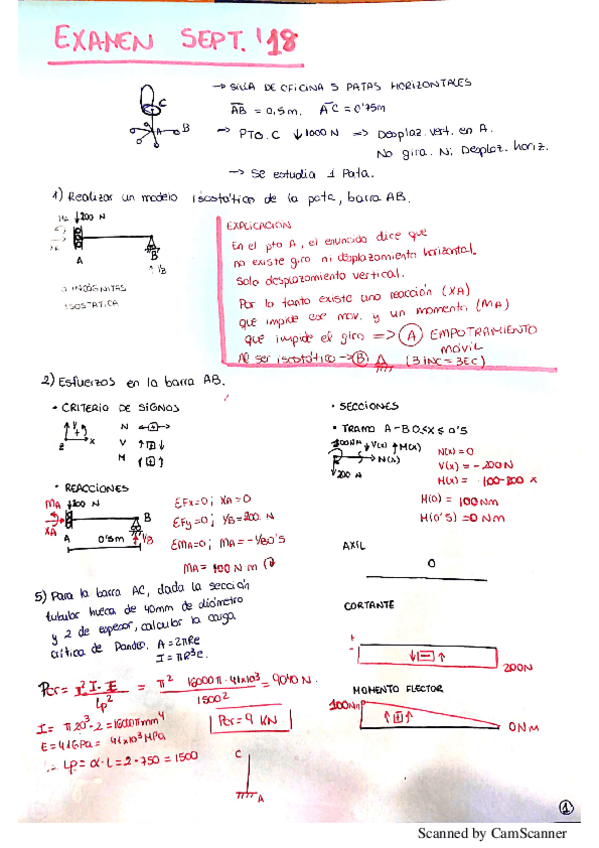 EXAMEN SEPT. '18
→ SILLA DE OFICINA 5 PATAS HORIZONTALES
AB = 0,5m. AC = 0'75m
→ PTO. C ↓1000 N ⇒ Desplaz. vert. en A.
No gira. Ni Desplaz. horiz.
→ Se estudia 1 Pata.
C
A
B
1) Realizar un modelo isostático de la pata, barra AB.
↓200 N
A
B
↑YB
3 INCÓGNITAS
ISOSTATICA
EXPLICACIÓN
En el pto A, el enunciado dice que
no existe giro ni desplazamiento horizontal.
Solo desplazamiento vertical.
Por lo tanto existe una reacción (XA)
que impide ese mov. y un momento (MA)
que impide el giro ⇒ A EMPOTRAMIENTO
MÓVIL
Al ser isostático → B (3 INC = 3 EC)
2) Esfuerzos en la barra AB.
• CRITERIO DE SIGNOS
Y
X
Z
N
V
M
• REACCIONES
MA ↓200 N
XA
A
0'5m
B
↑YB
ΣFx=0; XA=0
ΣFy=0; YB=200 N
ΣMA=0; MA=-YB0'5
MA= 100 N m
• SECCIONES
• TRAMO A-B 0≤x≤0'5
100NM ↓V(x) M(x)
→N(x)
200 N
N(x)=0
V(x) = -200N
M(x) = 100-200 x
M(0) = 100Nm
M(0'5) = 0 Nm
AXIL
0
CORTANTE
+
-
↓⊟↑
200N
MOMENTO FLECTOR
100Nm
↑⊞↑
0Nm
5) Para la barra AC, dada la sección
tubular hueca de 40mm de diámetro
y 2 de espesor, calcular la carga
crítica de Pandeo. A = 2πRe
I = πR³e.
Pcr = π²·I·E / Lp² = π² 16000π·41x10³ / 1500² = 9040 N.
I = π20³·2 = 16000πmm⁴
E = 41GPa = 41x10³MPa
∴ Lp = α·L = 2·750 = 1500
Pcr = 9 KN
C
A
1
Scanned by CamScanner